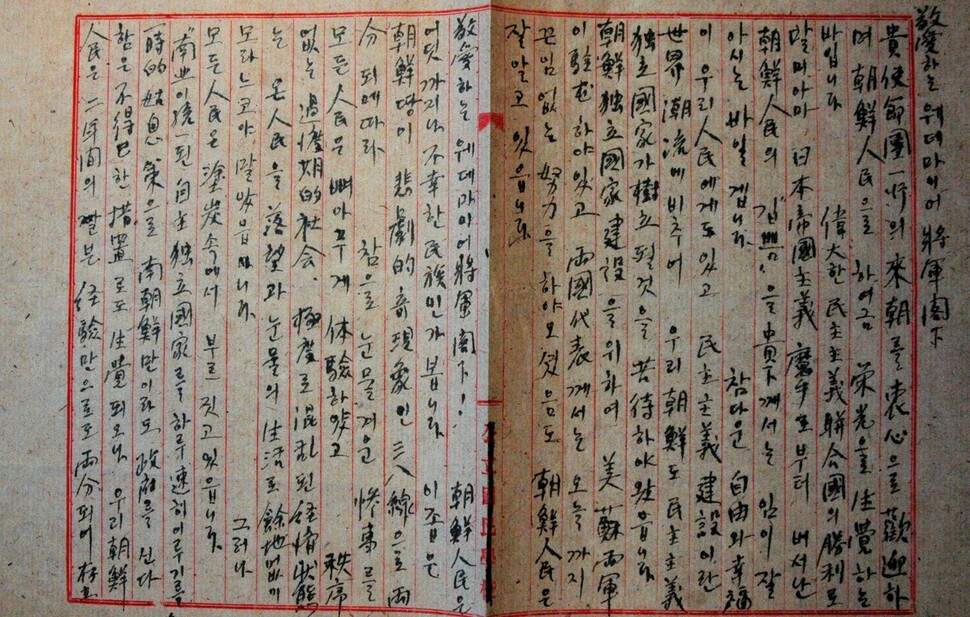 敬愛하는 웨데마이어 將軍閣下
貴使節團一行의 來朝를 衷心으로 歡迎하
며 朝鮮人民을 하여금 榮光을 生覺하는
바입니다 偉大한 民主主義聯合國의 勝利로
말미아마 日本帝國主義 魔手로부터 버서난
朝鮮人民의 깁쁨을 貴下께서는 임이 잘
아시는 바일 겝니다. 참다운 自由와 幸福
이 우리 人民에게도 있고 民主主義建設이란
世界潮流에 비추어 우리 朝鮮도 民主主義
独立國家가 樹立될것을 苦待하야 왔읍니다
朝鮮独立國家建設을 위하여 美蘇両軍
이 駐屯하야있고 両國代表께서는 오늘까지
끈임없는 努力을 하야오셨음도 朝鮮人民은
잘 알고 있읍니다.
敬愛하는 웨데마이어將軍閣下! 朝鮮人民은
어딧까지나 不幸한 民族인가 봅니다 이줍은
朝鮮땅이 悲劇的 奇現象인 三八線으로 両
分되메따라 참으로 눈물겨운 慘事를
모든 人民은 뼈아푸게 体驗하였고 秩序
없는 過渡期的社会, 極度로 混乱된 經濟狀態
는 온 人民을 落望과 눈물의 生活로 餘地없이
모라느코야 말았읍니다. 그러나
모든 人民은 塗炭속에서 부르짓고 있읍니다.
"南北이 統一된 自主独立國家를 하루速히 이루기를
一時的 姑息策으로 南朝鮮만이라도 政府를 신다
함은 不得已한 措置로도 生覺되오나 우리 朝鮮
人民은 二年間의 짤븐 経驗만으로도 両分되여